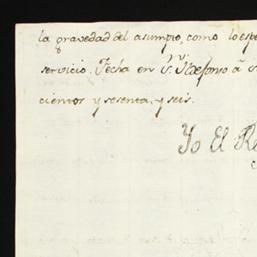 la gravedad del asumpto, como lo espe
servicio. Fecha en Sn. Yldefonso à
cientos y sesenta, y seis.
Yo El Re